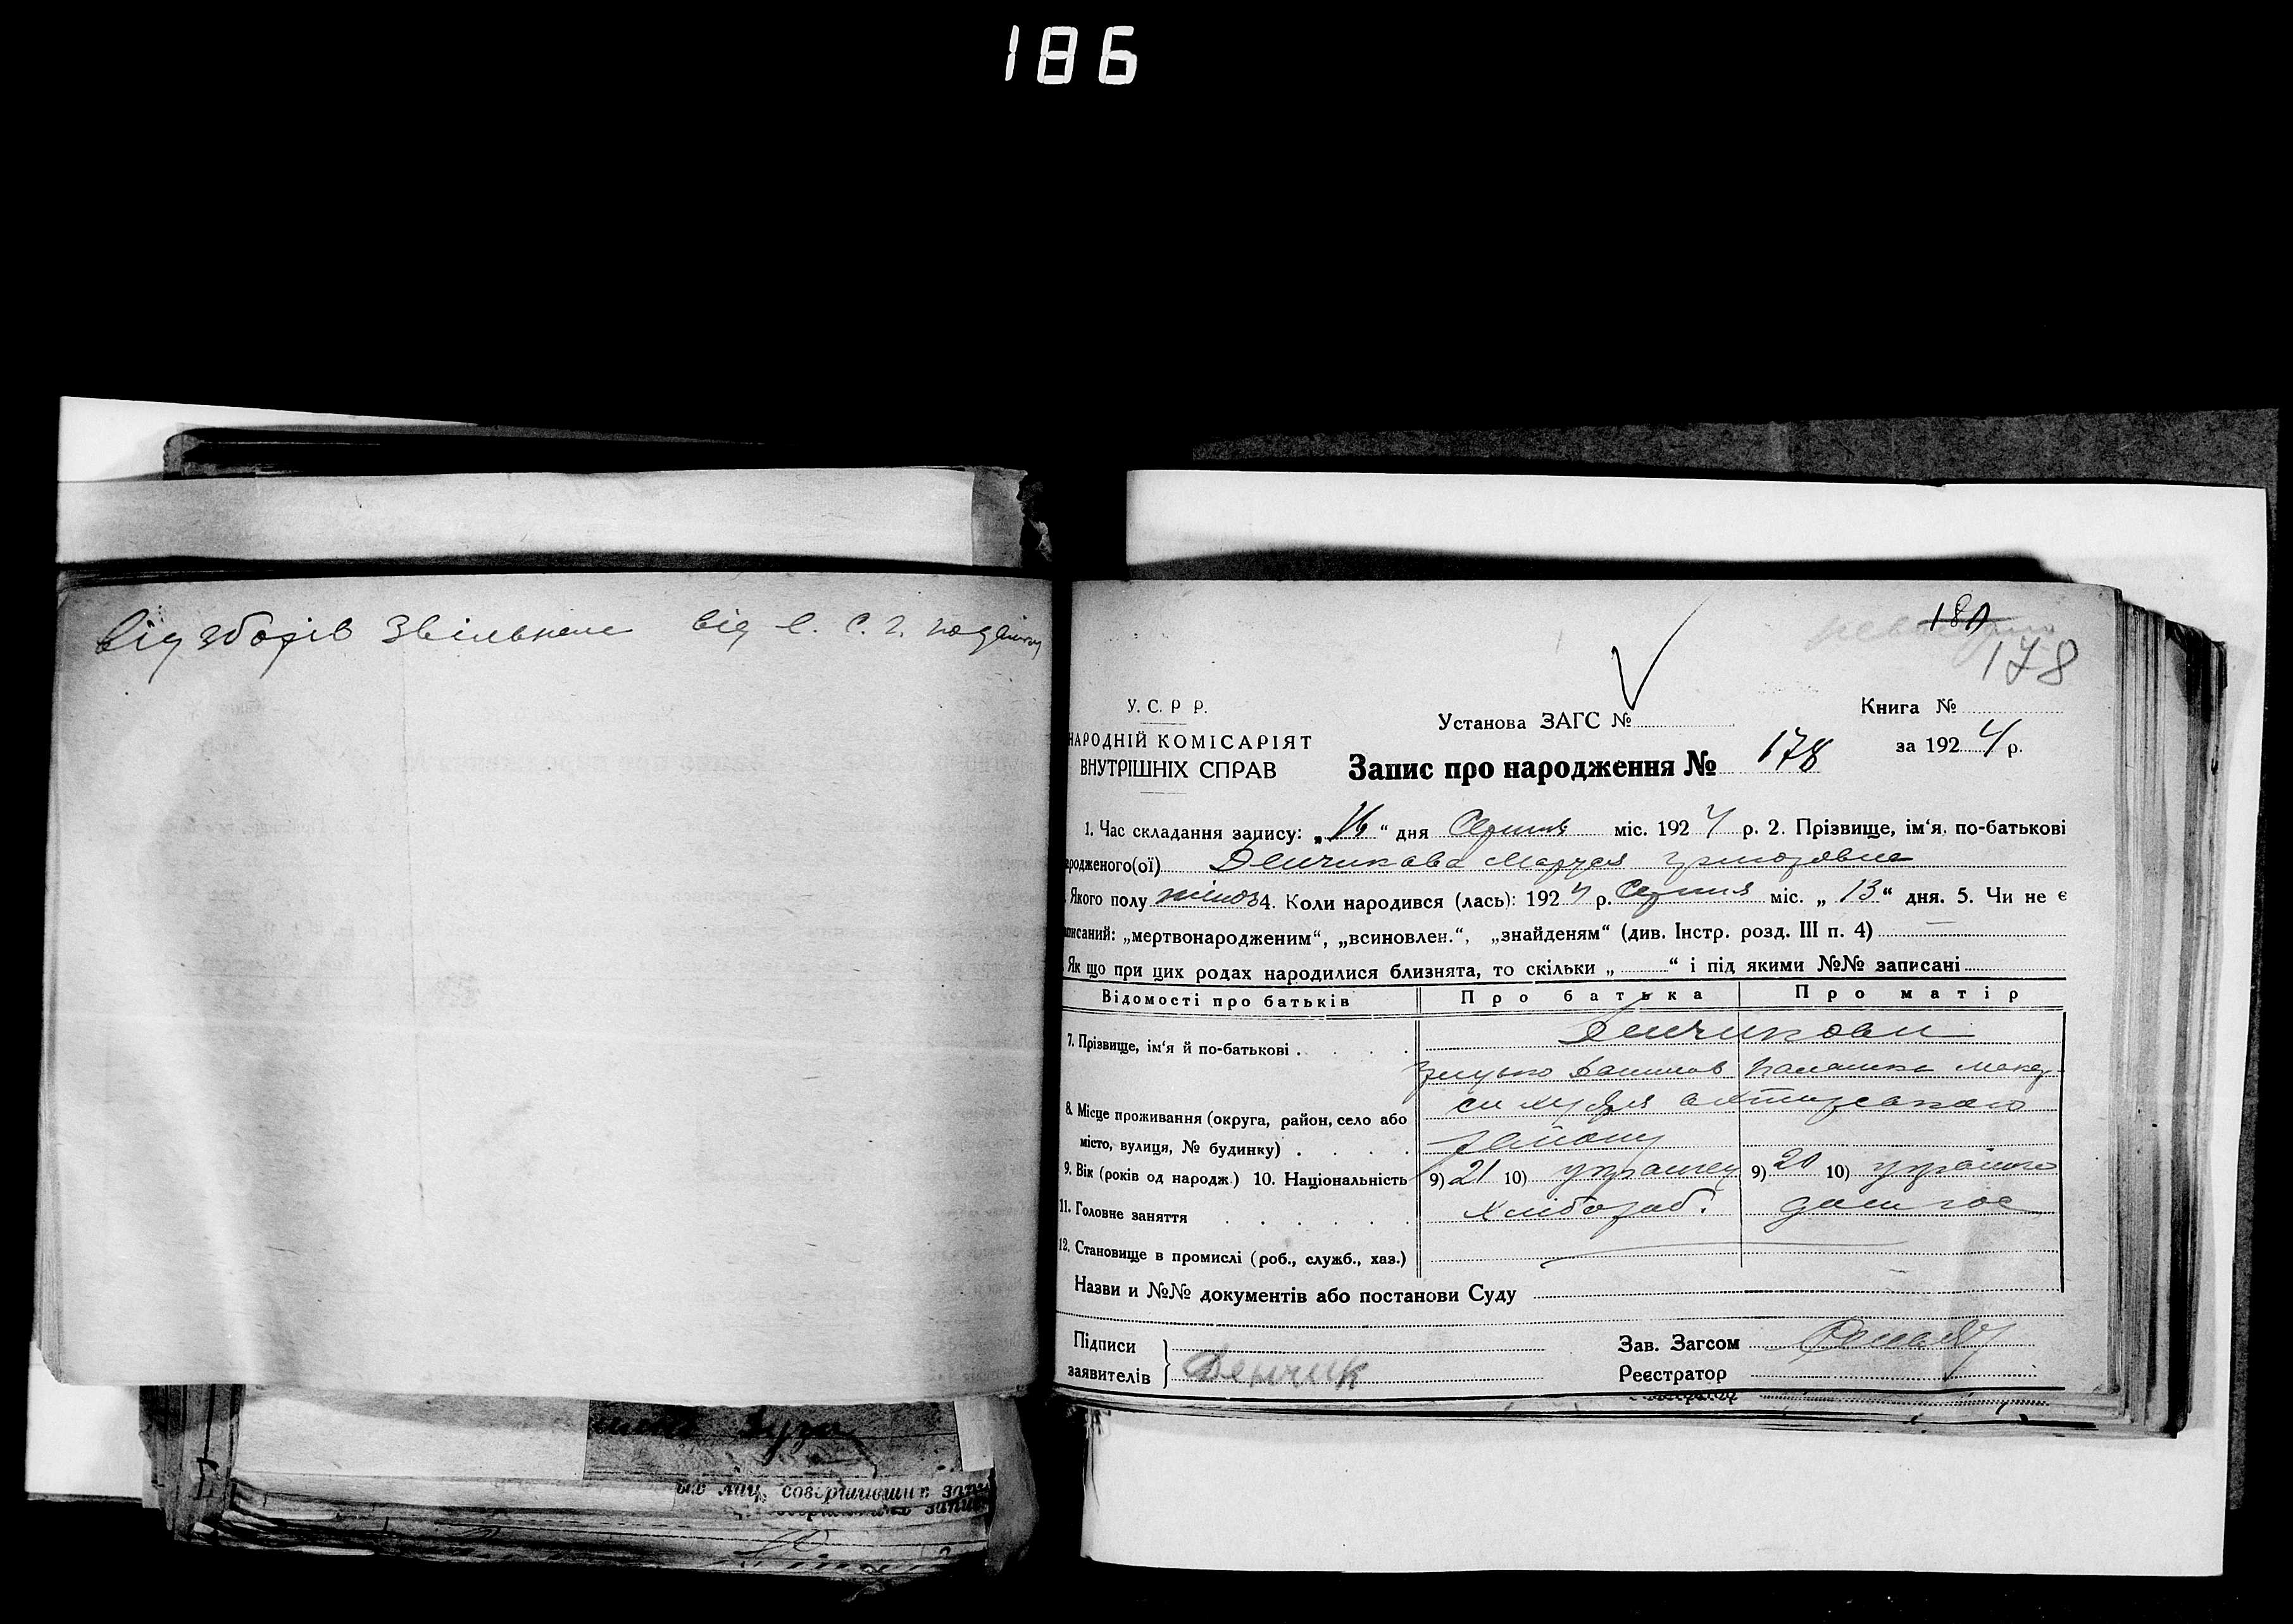 186
від зборів звільнене від є. С. г. податку
180
178
У. С. Р Р.
Установа ЗАГС №
Книга №
НАРОДНІЙ КОМІСАРІЯТ
за 1924 р.
ВНУТРІШНІХ СПРАВ
Запис про народження № 178
1. Час складання запису: „16“ дня Серпня міс. 1924 р. 2. Прізвище, ім‘я, по-батькові
ародженого(ої) Денчикова Маруся Григоровна
Якого полу жіноч 4. Коли народився (лась): 1924 р. Серпня міс. „13“ дня. 5. Чи не є
писаний: „мертвонародженим“, „всиновлен.“, „знайденям“ (див. Інстр. розд. III п. 4) —
Як що при цих родах народилися близнята, то скільки „ “ і під якими №№ записані
Відомості про батьків Про батька Про матір
7. Прізвище, ім‘я й по-батькові . . . . Денчикови
Грицько Палашка
8. Місце проживання (округа, район, село або
місто, вулиця, № будинку) . . . . району
9. Вік (років од народж.) 10. Національність 9) 21 10) українец 9) 20 10) українка
11. Головне заняття . . . . . . хлібороб. дом гос
12. Становище в промислі (роб., служб., хаз.)
Назви и №№ документів або постанови Суду
Підписи
Зав. Загсом
заявителів Денчик
Реєстратор
их лиц, совершивших запи